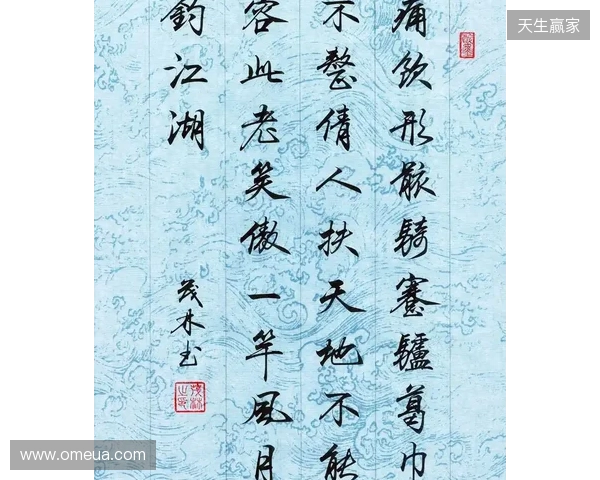 天生赢家
痛飲形骸騎蹇驢葛巾
不整倩人扶天地不能
容此老笑傲一竿風月
釣江湖
茂林书
www.omeua.com